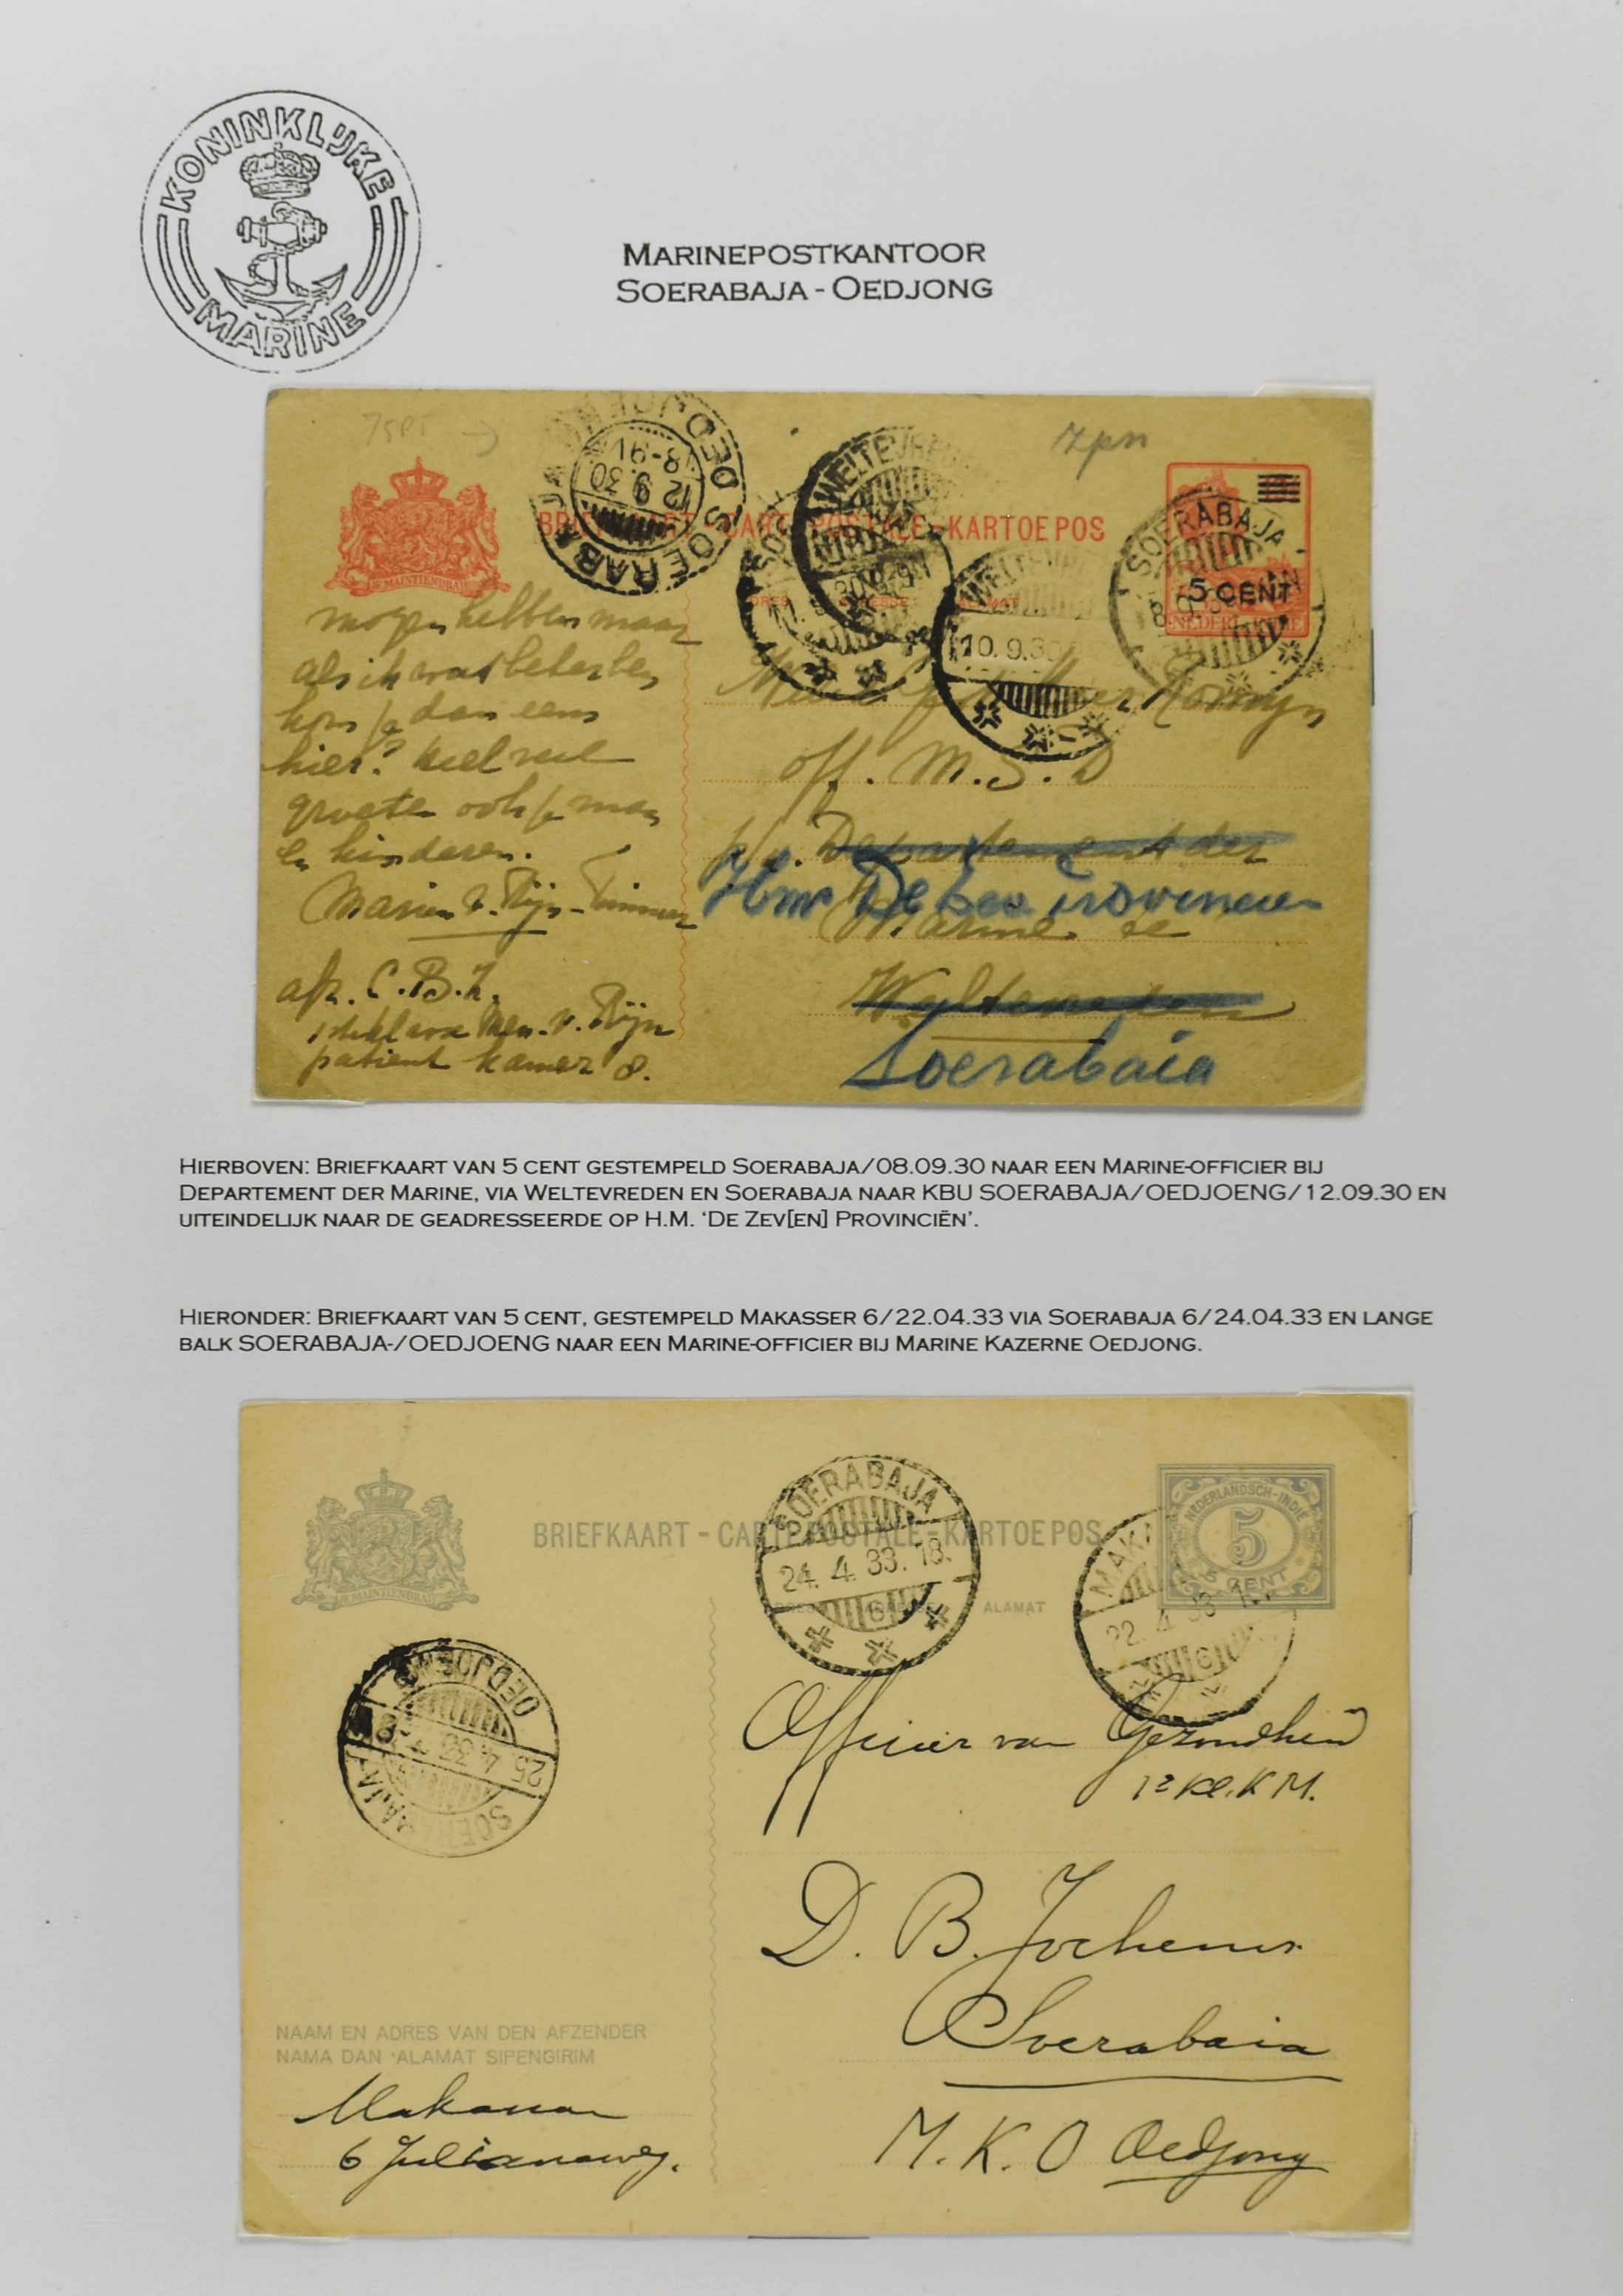 KONINKLIJKE
MARINE
MARINEPOSTKANTOOR
SOERABAJA - OEDJONG
7 pn
BRIEFKAART - CARTE POSTALE - KARTOE POS
JE MAINTIENDRAI
5 CENT
SOERABAJA OEDJOENG
12.9.30
WELTEVREDEN
SOERABAJA
WELTEVREDEN
10.9.30
ALAMAT
mogen hebben maar
als ik wat beter ben
kom je dan eens
hier? Heel veel
groeten ook je man
en kinderen.
Marien v. Rijn-Timmer
afz. C.B.Z.
1e klas Mev. v. Rijn
patient kamer 8.
off. M. S. D
p/a. Departement der
Hm De Zev Provincien
Marine
Weltevreden
Soerabaia
HIERBOVEN: BRIEFKAART VAN 5 CENT GESTEMPELD SOERABAJA/08.09.30 NAAR EEN MARINE-OFFICIER BIJ
DEPARTEMENT DER MARINE, VIA WELTEVREDEN EN SOERABAJA NAAR KBU SOERABAJA/OEDJOENG/12.09.30 EN
UITEINDELIJK NAAR DE GEADRESSEERDE OP H.M. ‘DE ZEV[EN] PROVINCIËN’.
HIERONDER: BRIEFKAART VAN 5 CENT, GESTEMPELD MAKASSER 6/22.04.33 VIA SOERABAJA 6/24.04.33 EN LANGE
BALK SOERABAJA-/OEDJOENG NAAR EEN MARINE-OFFICIER BIJ MARINE KAZERNE OEDJONG.
BRIEFKAART - CARTE POSTALE - KARTOE POS
JE MAINTIENDRAI
NEDERLANDSCH-INDIË
5
CENT
SOERABAJA
24. 4. 33. 18.
6
22. 4. 33
6
ALAMAT
OEDJOENG
25. 4. 33
SOERABAJA
Officier van Gezondheid
1e Kl. K M.
D. B. Jochems
Soerabaia
M. K. O Oedjong
NAAM EN ADRES VAN DEN AFZENDER
NAMA DAN ‘ALAMAT SIPENGIRIM
Makassar
6 Julianaweg.